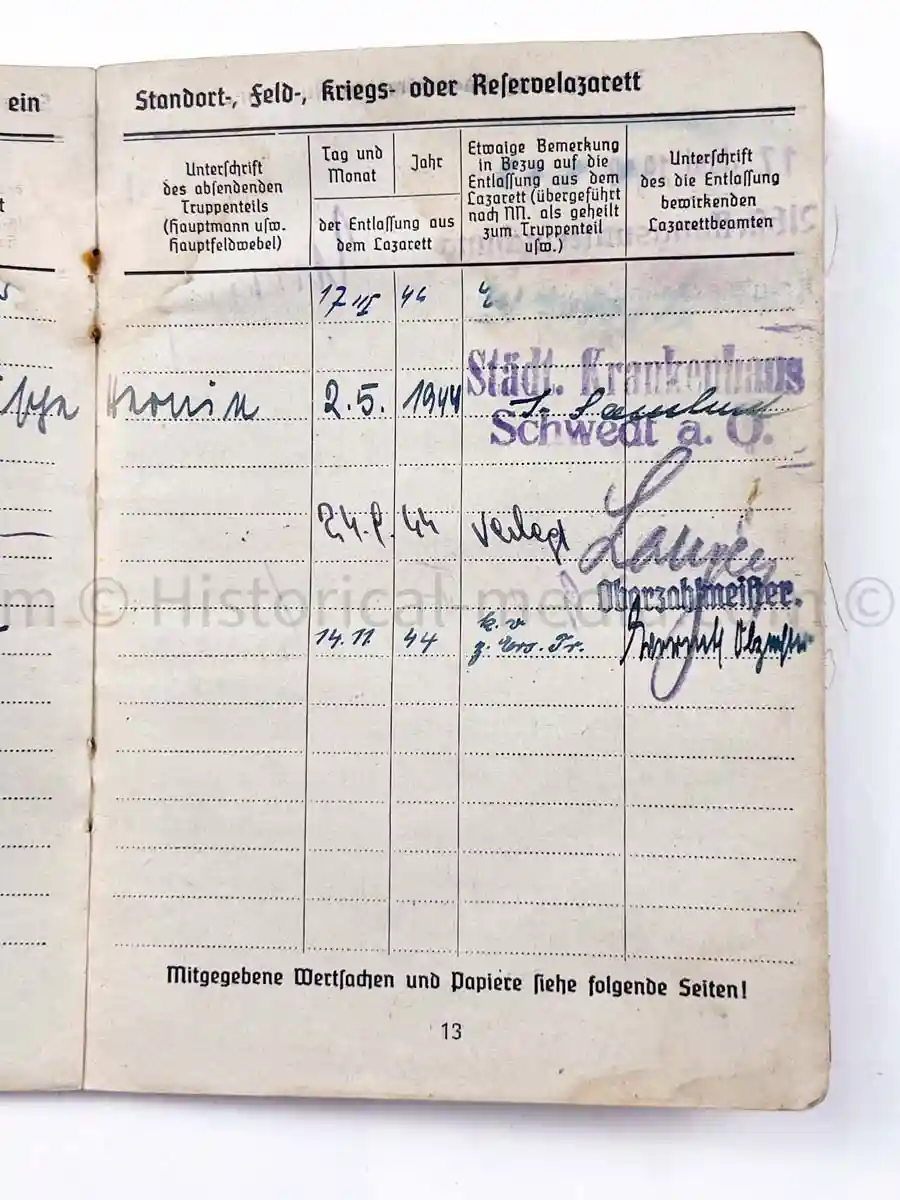 ein
Standort-, Feld-, Kriegs- oder Reservelazarett
Unterschrift
des absendenden
Truppenteils
(Hauptmann usw.
Hauptfeldwebel)
Tag und
Monat
Jahr
der Entlassung aus
dem Lazarett
Etwaige Bemerkung
in Bezug auf die
Entlassung aus dem
Lazarett (übergeführt
nach NN. als geheilt
zum Truppenteil
usw.)
Unterschrift
des die Entlassung
bewirkenden
Lazarettbeamten
Städt. Krankenhaus
2.5. 1944
Schwedt a. O.
44 verlegt
© Historical-media.com ©
Oberzahlmeister.
k.v
14.11 44 z. Ers. Tr.
Mitgegebene Wertsachen und Papiere siehe folgende Seiten!
13